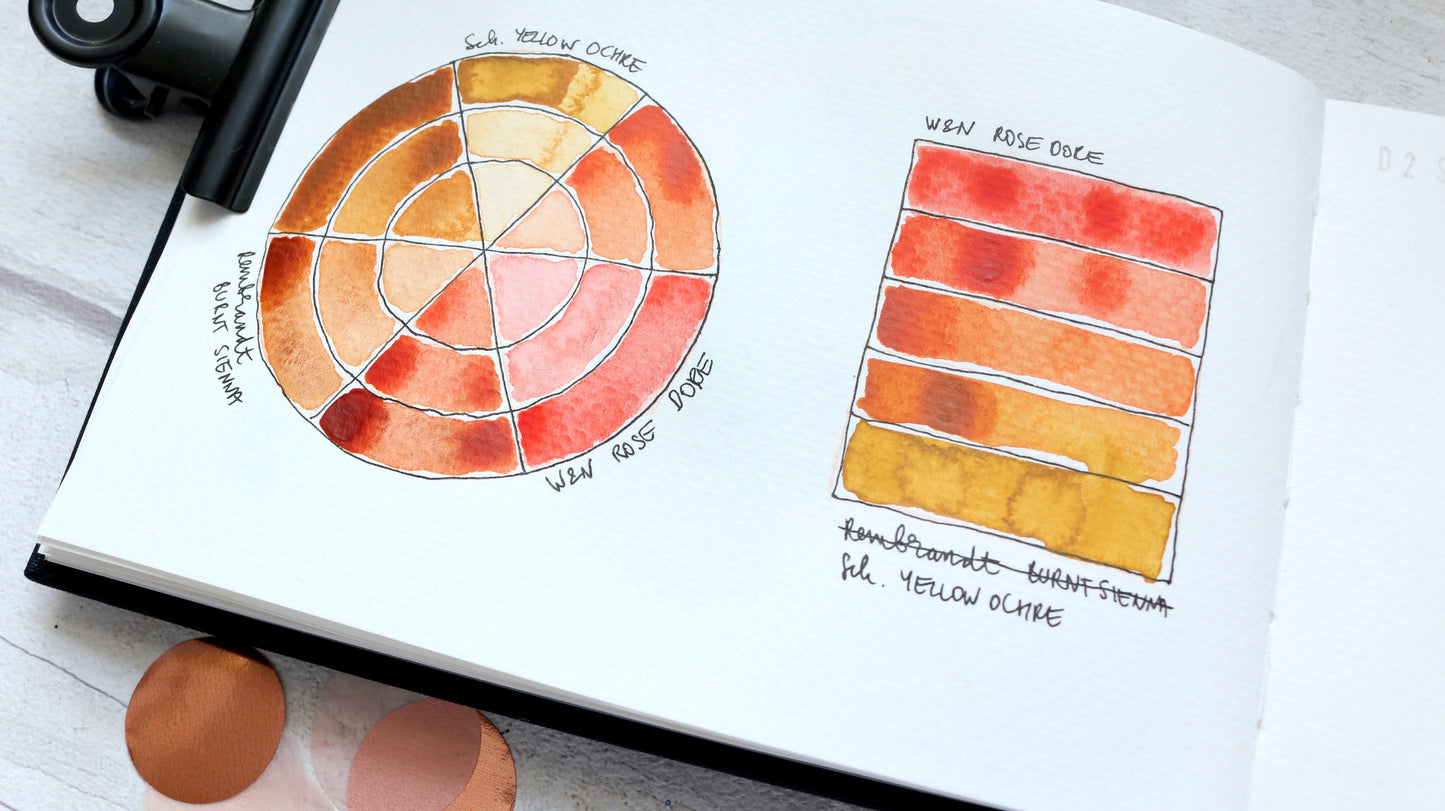 Sch. YELLOW OCHRE
Rembrandt
BURNT SIENNA
W&N ROSE DORE
W&N ROSE DORE
Rembrandt BURNT SIENNA
Sch. YELLOW OCHRE